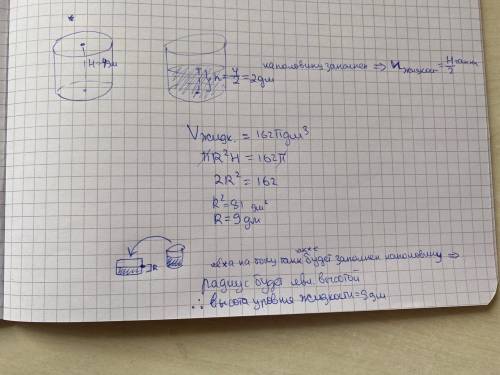 *
H=4дм
h = 4/2 = 2дм
наполовину заполнен ⇒ H жидкости = H танка/2
Vжидк. = 162π дм³
πR²H = 162π
2R² = 162
R² = 81 дм²
R = 9 дм
R
на боку танк также будет заполнен наполовину ⇒
радиус будет явл. высотой
∴ высота уровня жидкости = 9дм